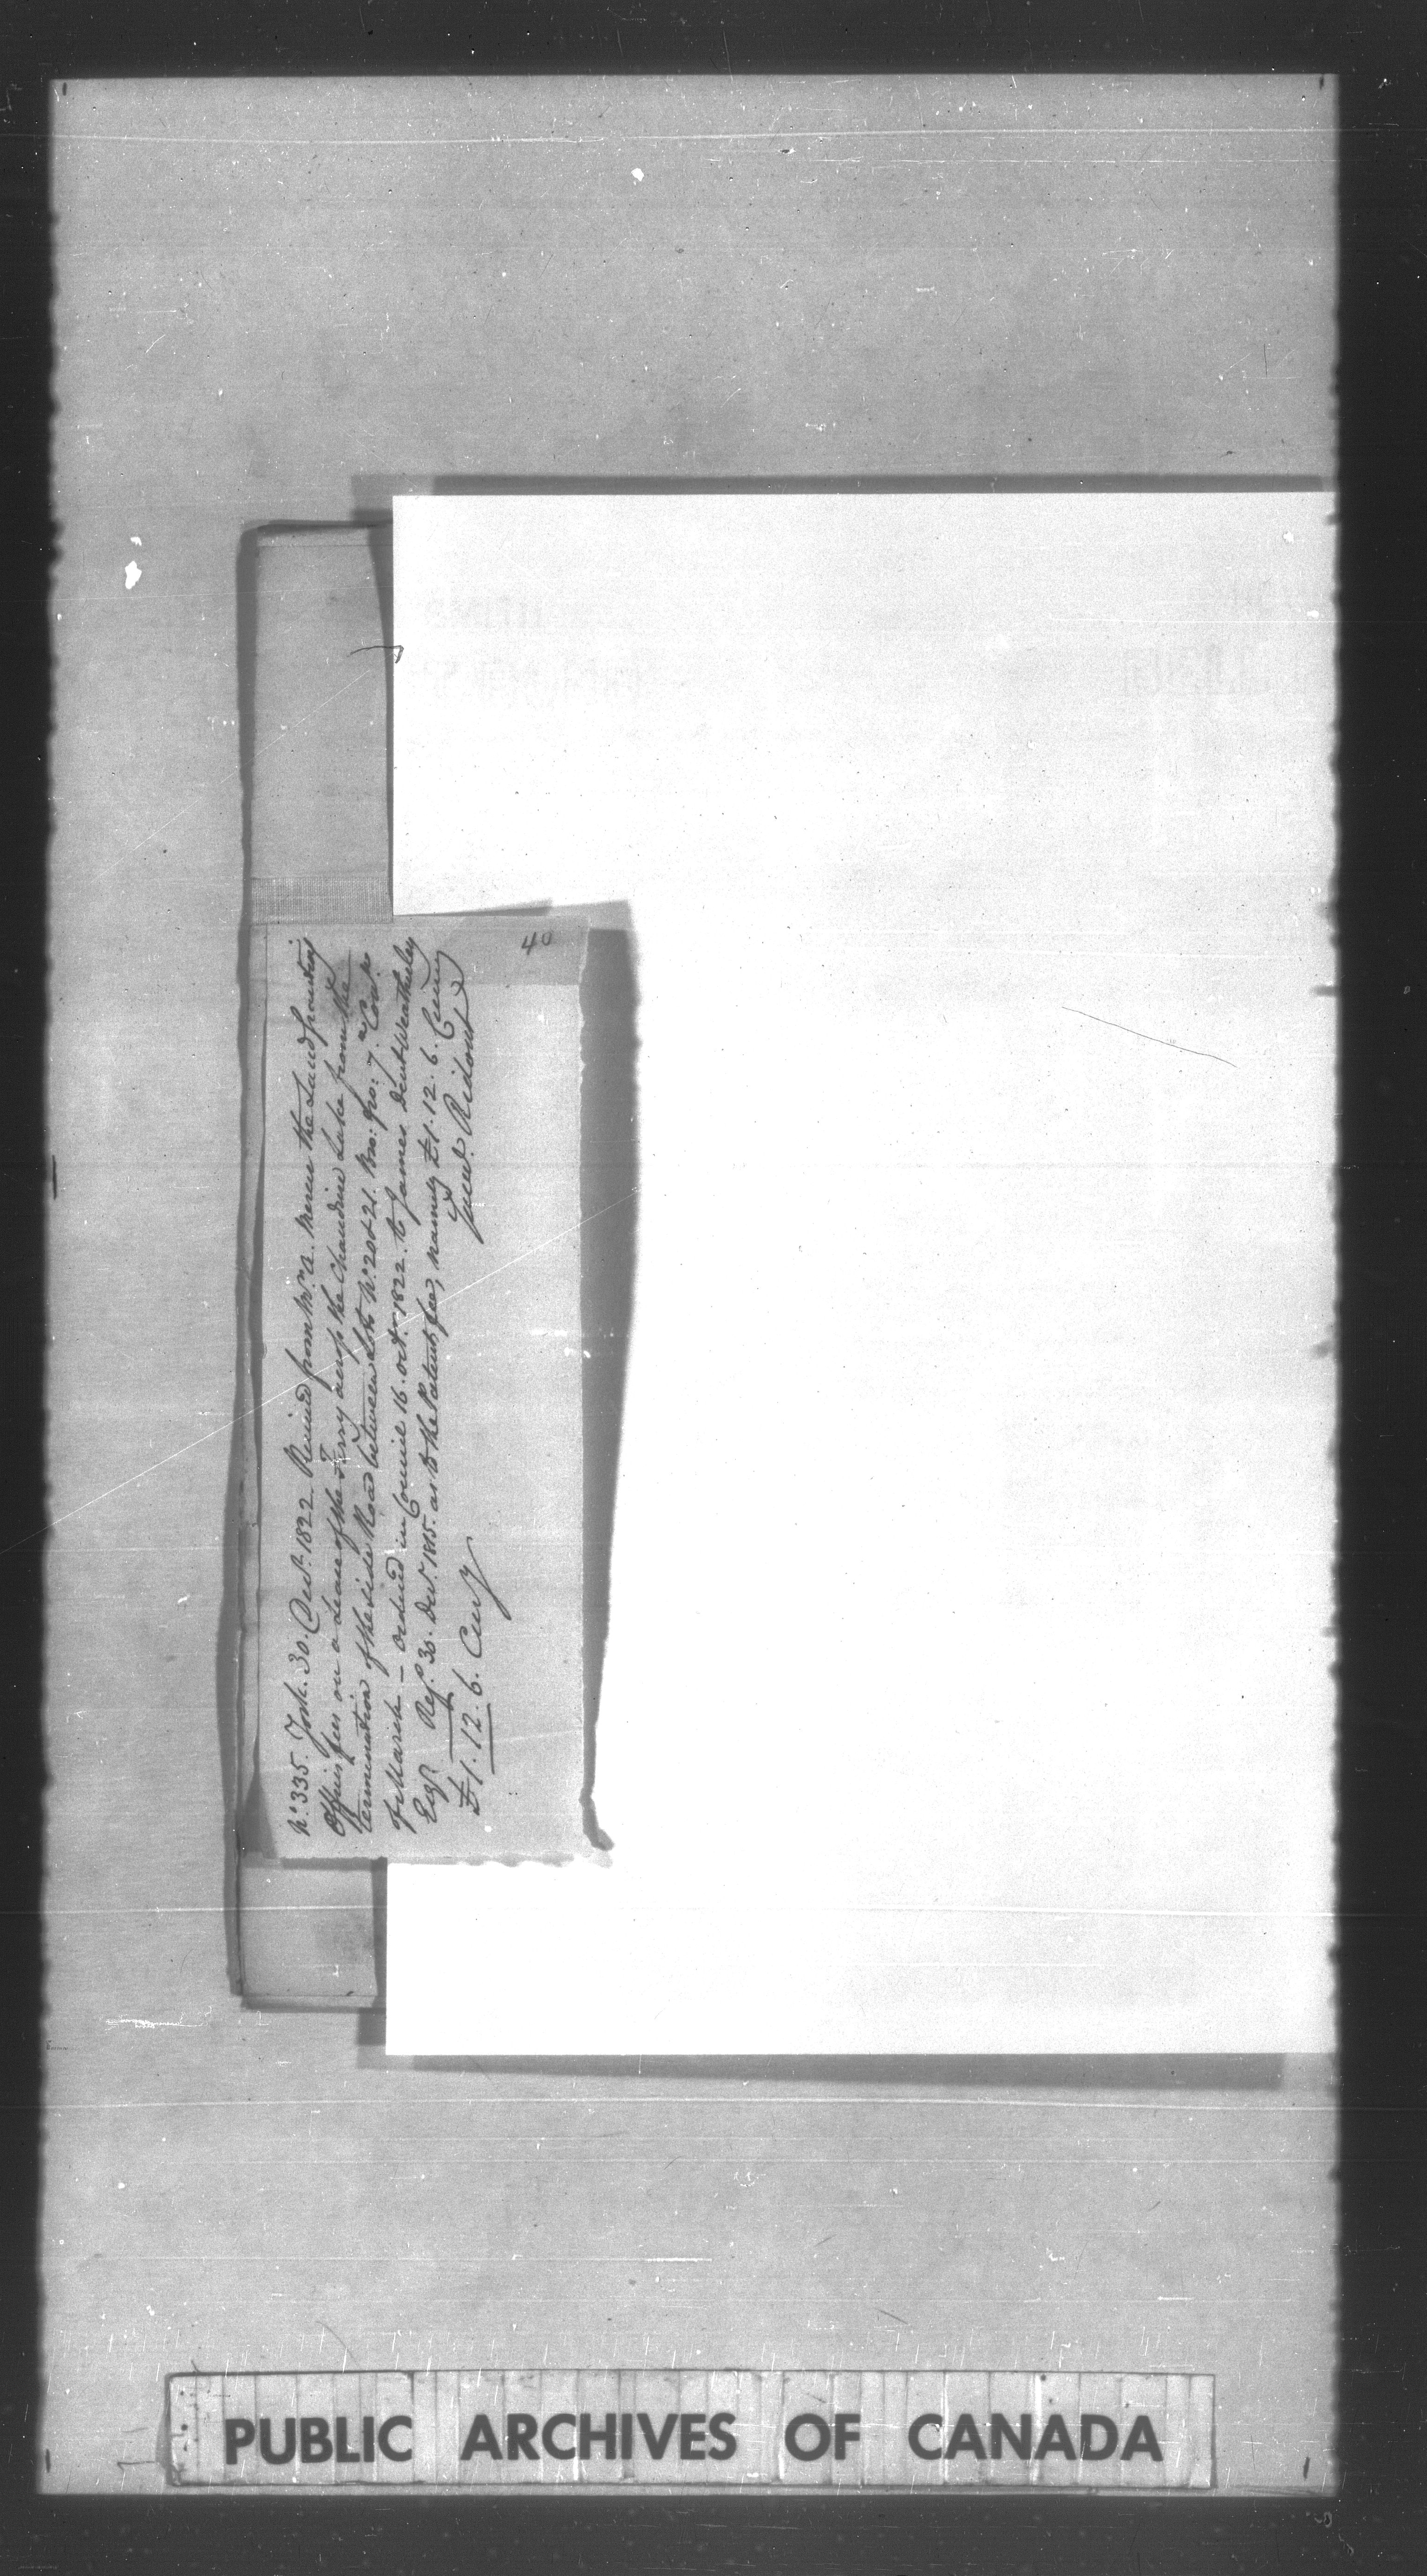 40
No. 335. York. 30. Decr. 1822. Received from Mr. A. Mercer the Land Granting
Office fees on a Lease of the Ferry across the Chaudiere Lake from the
termination of the side Road between Lots No. 20 & 21. Con: 7th
of March – ordered in Council 16. Octr. 1822. to James Dent Weatherley
Esqr. Regr. 30. Decr. 1815. as to the Patent fee, namely £1. 12. 6. Curry
£1. 12. 6. Curry Ridout
PUBLIC ARCHIVES OF CANADA